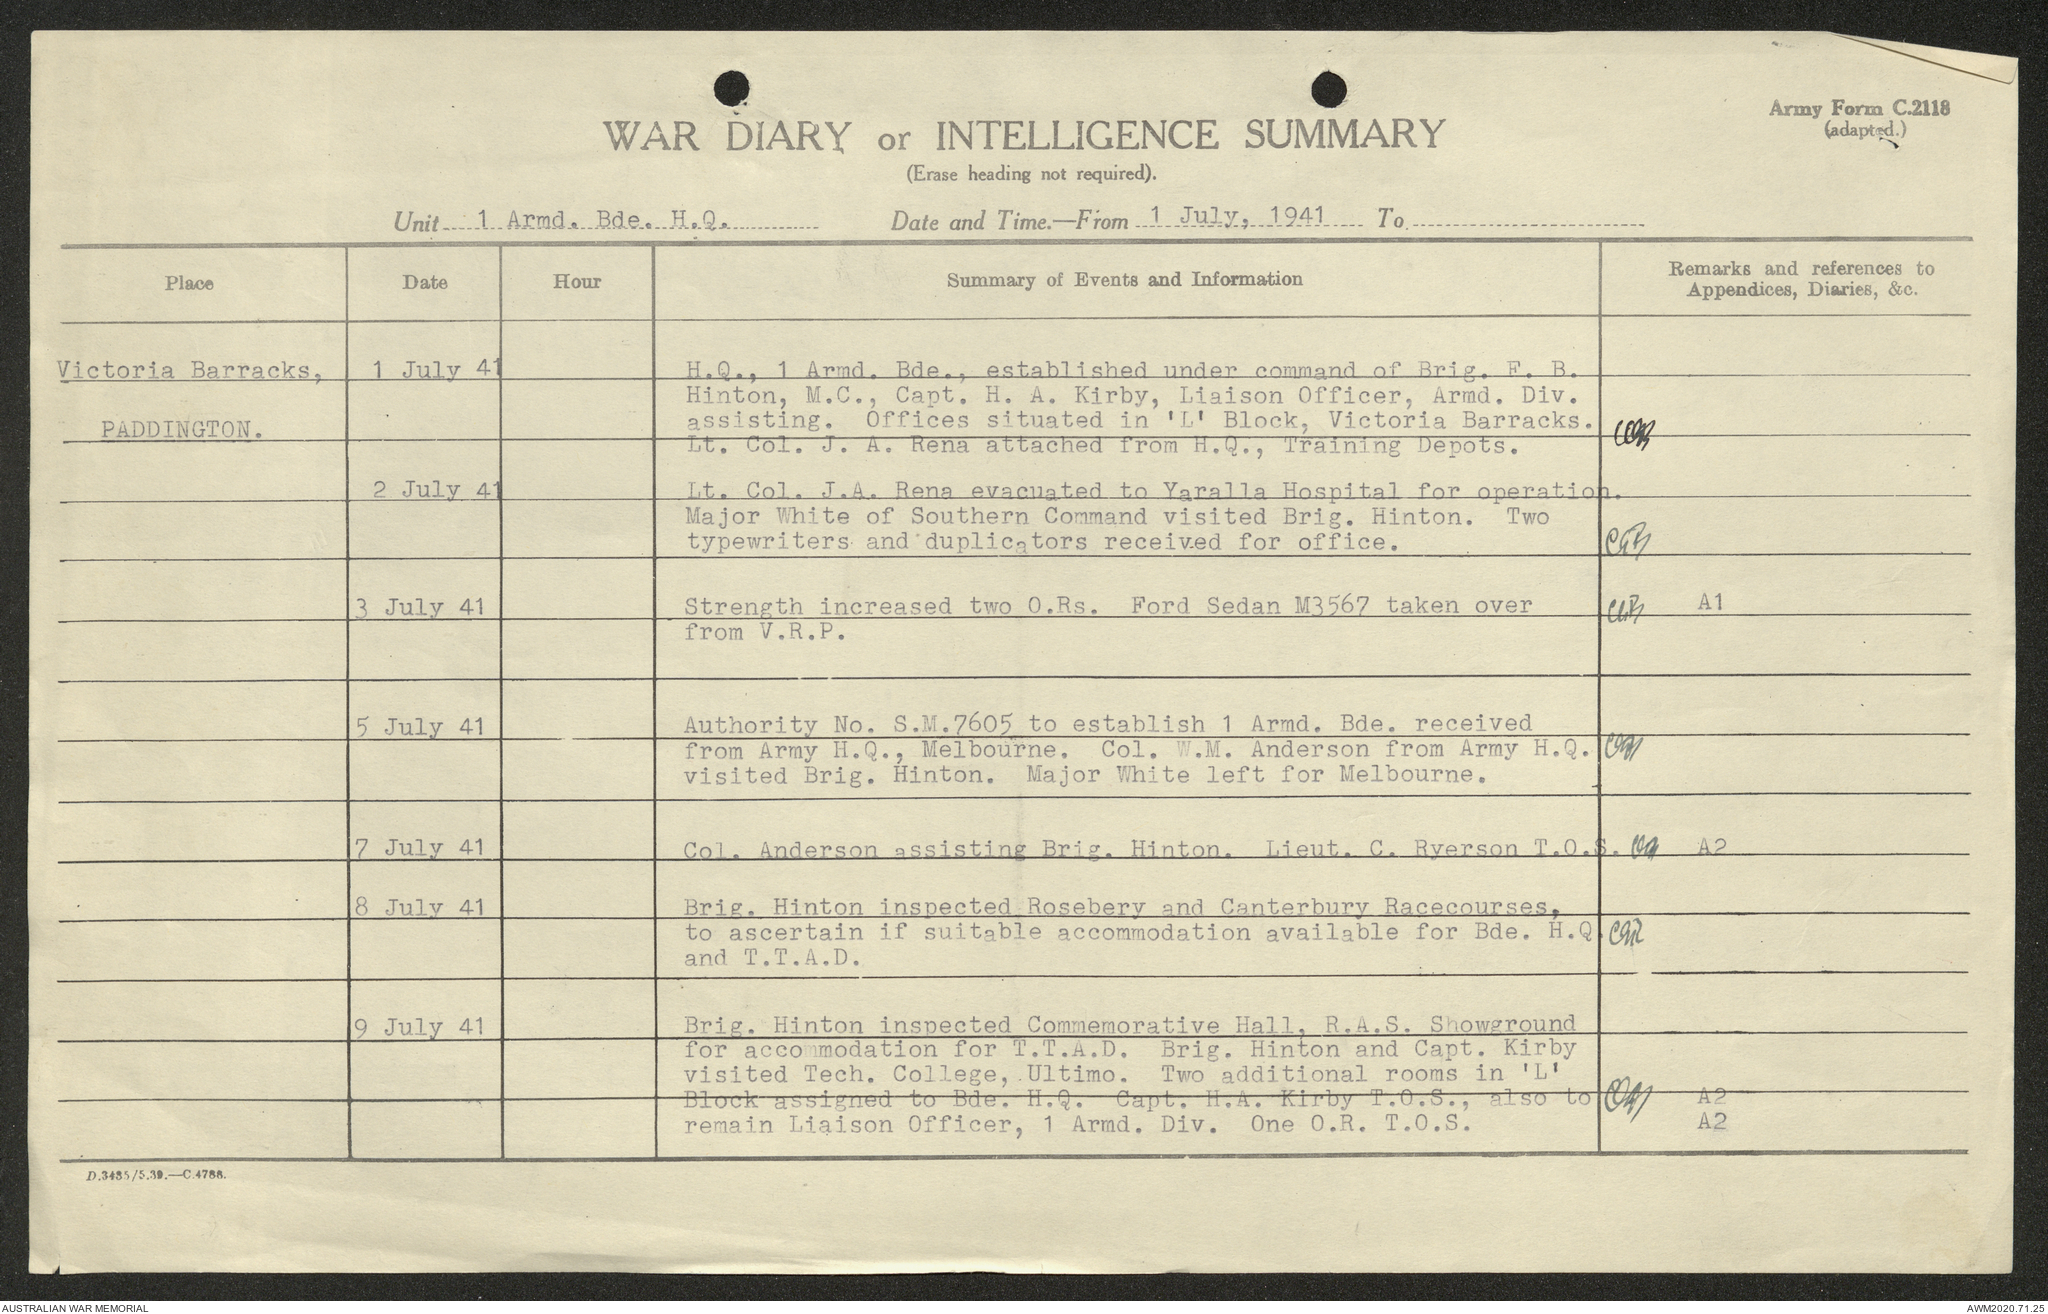 Army Form C.2118
(adapted.)
WAR DIARY or INTELLIGENCE SUMMARY
(Erase heading not required).
Unit 1 Armd. Bde. H.Q. Date and Time.—From 1 July, 1941 To
Place Date Hour Summary of Events and Information Remarks and references to
Appendices, Diaries, &c.
Victoria Barracks, 1 July 41 H.Q., 1 Armd. Bde., established under command of Brig. F. B.
Hinton, M.C., Capt. H. A. Kirby, Liaison Officer, Armd. Div.
PADDINGTON. assisting. Offices situated in 'L' Block, Victoria Barracks.
Lt. Col. J. A. Rena attached from H.Q., Training Depots.
2 July 41 Lt. Col. J.A. Rena evacuated to Yaralla Hospital for operation.
Major White of Southern Command visited Brig. Hinton. Two
typewriters and duplicators received for office.
3 July 41 Strength increased two O.Rs. Ford Sedan M3567 taken over A1
from V.R.P.
5 July 41 Authority No. S.M.7605 to establish 1 Armd. Bde. received
from Army H.Q., Melbourne. Col. W.M. Anderson from Army H.Q.
visited Brig. Hinton. Major White left for Melbourne.
7 July 41 Col. Anderson assisting Brig. Hinton. Lieut. C. Ryerson T.O.S. A2
8 July 41 Brig. Hinton inspected Rosebery and Canterbury Racecourses,
to ascertain if suitable accommodation available for Bde. H.Q.
and T.T.A.D.
9 July 41 Brig. Hinton inspected Commemorative Hall, R.A.S. Showground
for accommodation for T.T.A.D. Brig. Hinton and Capt. Kirby
visited Tech. College, Ultimo. Two additional rooms in 'L'
Block assigned to Bde. H.Q. Capt. H.A. Kirby T.O.S., also to A2
remain Liaison Officer, 1 Armd. Div. One O.R. T.O.S. A2
D.3485/5.39.—C.4788.
AUSTRALIAN WAR MEMORIAL AWM2020.71.25